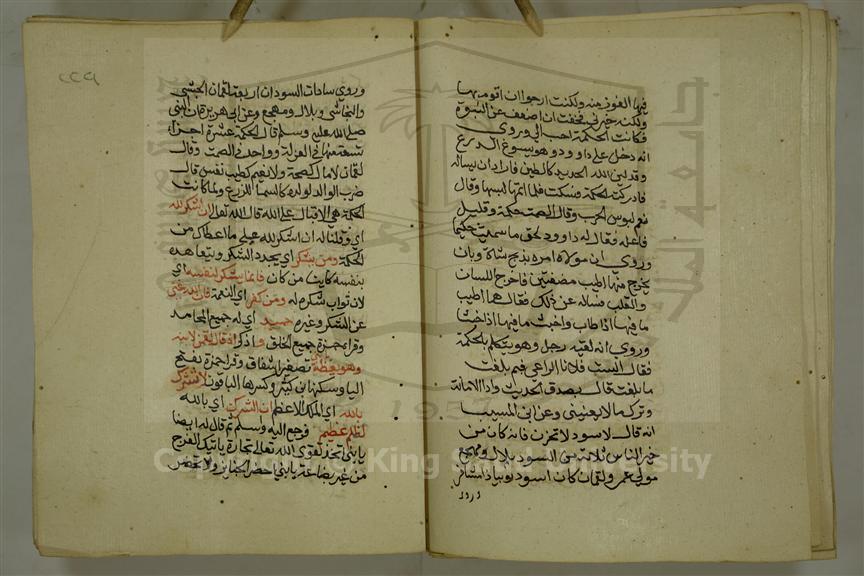 فيها الفوز منه ولكنت ارجوا ان اقوم بها
ولكنه خيرني فخفت ان اضعف عن النبوة
فكانت الحكمة احب الي وروي
انه دخل على داوود وهو يسرد الدروع
وقد لين الله الحديد كالطين فاراد ان يساله
فادركته الحكمة فسكت فلما اتمها لبسها وقال
نعم لبوس الحرب وقال الصمت حكمة وقليل
فاعله فقال له داوود لحق ما سميت حكيما
وروي ان مولاه امره بذبح شاة وبان
يخرج منها اطيب مضغتين فاخرج اللسان
والقلب فساله عن ذلك فقال هما اطيب
ما فيها اذا طاب واخبث ما فيها اذا خبثا
وروي انه لقيه رجل وهو يتكلم بالحكمة
فقال الست فلانا الراعي فبم بلغت
ما بلغت قال بصدق الحديث وادا الامانة
وترك ما لا يعنيني وعن ابن المسيب
انه قال لاسود لا تحزن فانه كان من
خير الناس ثلاثة من السود بلال ومهجع
مولى عمر ولقمان كان اسود نوبيا ذا مشافر
وروي
وروي سادات السودان اربعة لقمان الحبشي
والنجاشي وبلال ومهجع وعن ابي هريرة ان النبي
صلى الله عليه وسلم قال الحكمة عشرة اجزاء
تسعة منها في العزلة وواحد في الصمت وقال
لقمان لا مال كصحة ولا نعيم كطيب نفس وقال
ضرب الوالد لولده كالسماد للزرع ولما كانت
الحكمة هي الاقبال على الله قال الله تعالى ان اشكر لله
اي وقلنا له ان اشكر لله على ما اعطاك من
الحكمة ومن يشكر اي يجدد الشكر ويتعاهده
بنفسه كاينا من كان فانما يشكر لنفسه اي
لان ثواب شكره له ومن كفر اي النعمة فان الله غني
عن الشكر وغيره حميد اي له جميع المحامد
وقرا حمزة جميع الخلق واذكر اذ قال لقمن لابنه
وهو يعظه يابني تصغير اشفاق وقرا حمزة بفتح
اليا وسكنها ابن كثير وكسرها الباقون لا تشرك
بالله اي الملك الاعظم ان الشرك اي بالله
لظلم عظيم فرجع اليه واسلم ثم قال له ايضا
يابني اتخذ تقوى الله تعالى تجارة ياتيك الفرج
من غير بضاعة يابني احضر الجنايز ولا تحضر
جامعة الملك
1957
Copyright © King Saud University